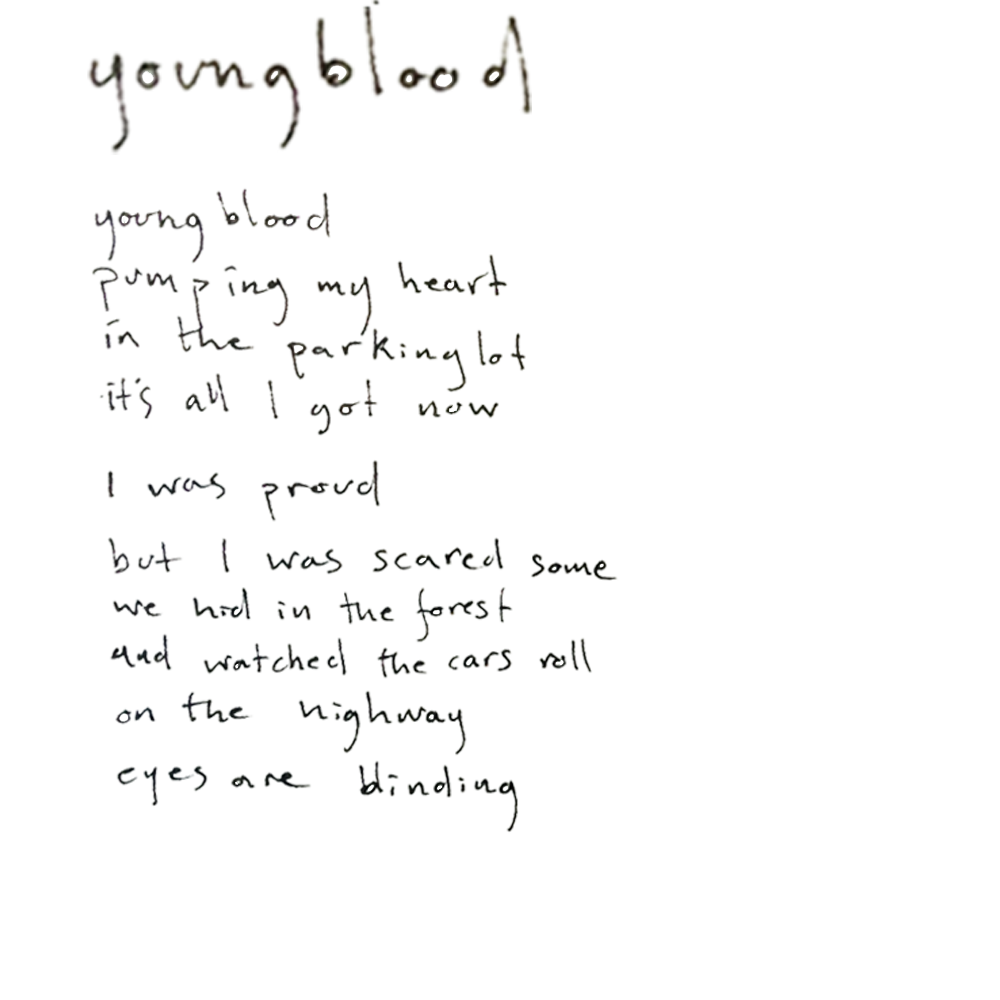 young blood
young blood
pumping my heart
in the parking lot
it's all I got now
I was proud
but I was scared some
we hid in the forest
and watched the cars roll
on the highway
eyes are blinding